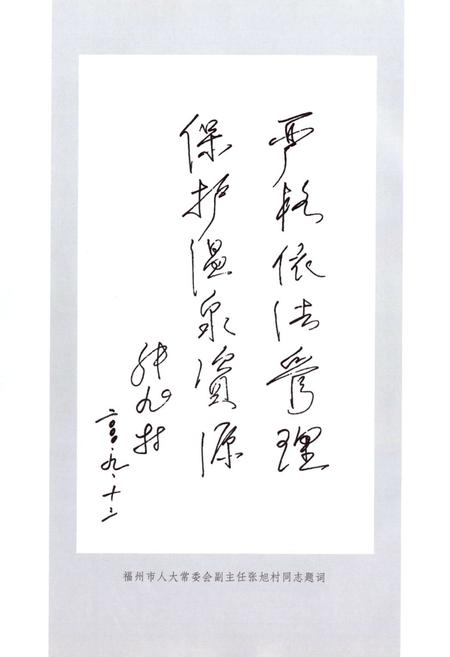 严格依法管理
保护温泉资源
张旭村
二〇〇〇.九.十二
福州市人大常委会副主任张旭村同志题词